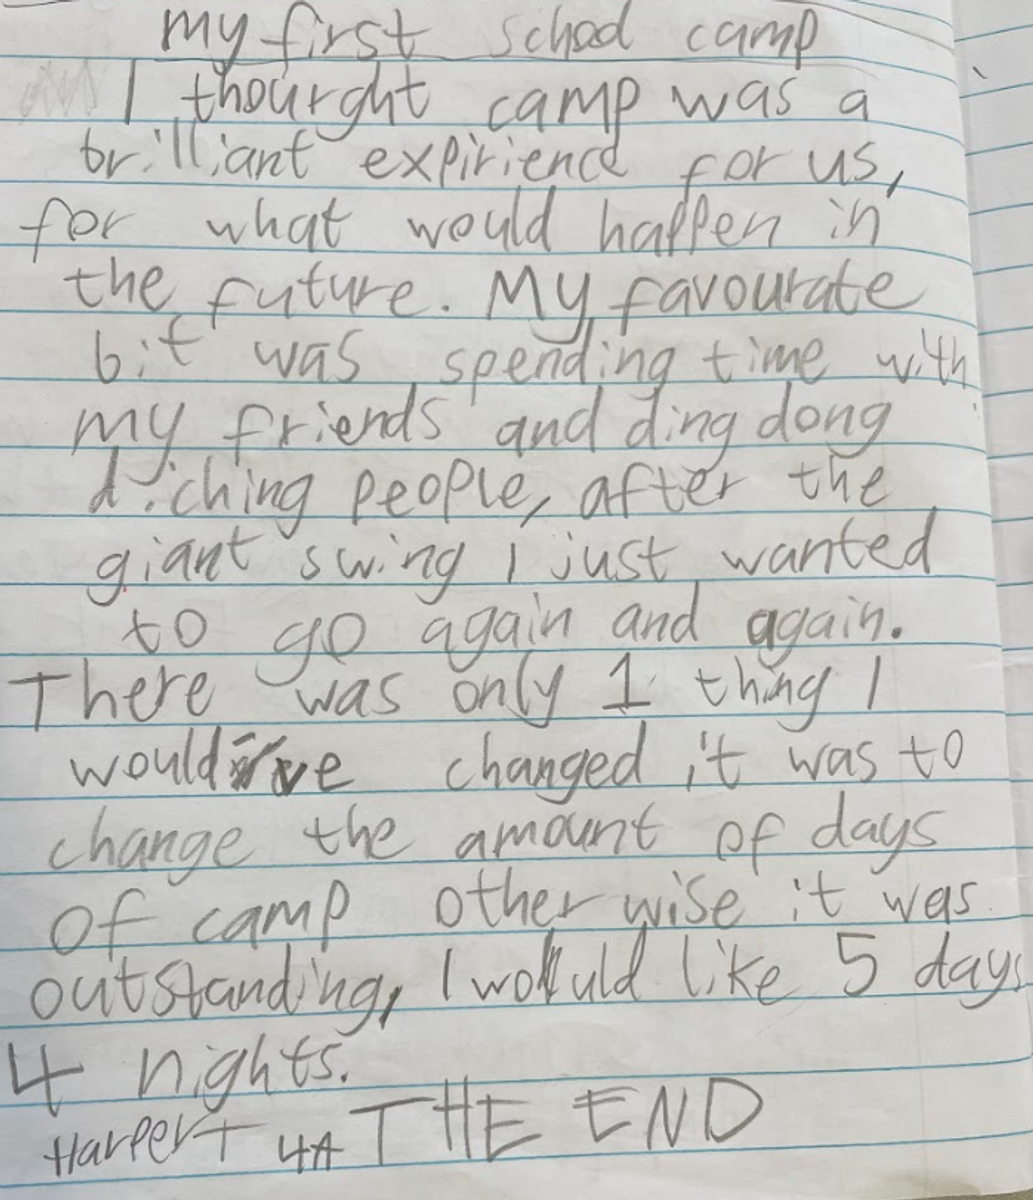 my first school camp
I thourght camp was a
brilliant expirience for us,
for what would happen in
the future. My favourate
bit was spending time with
my friends and ding dong
diching people, after the
giant swing I just wanted
to go again and again.
There was only 1 thing I
would've changed it was to
change the amount of days
of camp other wise it was
outstanding, I would like 5 days
4 nights.
Harper T 4A THE END